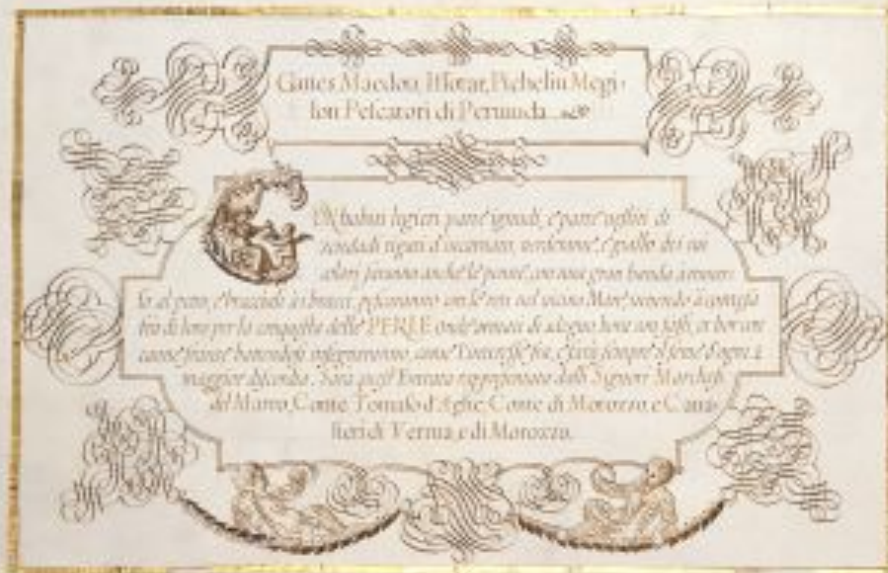 Maedou, Picheliu Megi-
lon Pescatori di
CON habiti legieri parte ignudi, e parte vestiti di
zendadi rigati d'incarnato, verdemare, e giallo dei cui
colori saranno anche le penne, con una gran benda à
al petto, e bracciali à i bracci, pescaranno con le reti nel vicino Mare venendo à
trà di loro per la conquista delle PERLE onde armati di sdegno hora con sassi, et hor con
canne battendosi insegneranno, come l'interesse fù, e sarà sempre il seme d'ogni
maggior discordia. Sarà quest'Entrata rappresentata dalli Signori Marchese
del Conte Tomaso d'Aglie, Conte di Morozzo, e Caua-
lieri di Verrua, e di Morozzo.